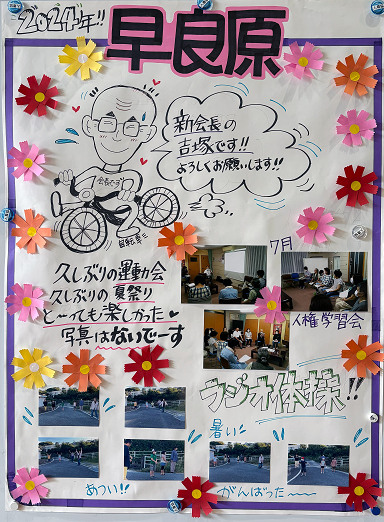 2024年!!
早良原
新会長の
吉塚です!!
よろしくお願いします!!
会長です
自転車
久しぶりの運動会
久しぶりの夏祭り
と〜っても楽しかった
写真はないでーす
7月
人権学習会
ラジオ体操!!
暑い
あつい!!
がんばったー